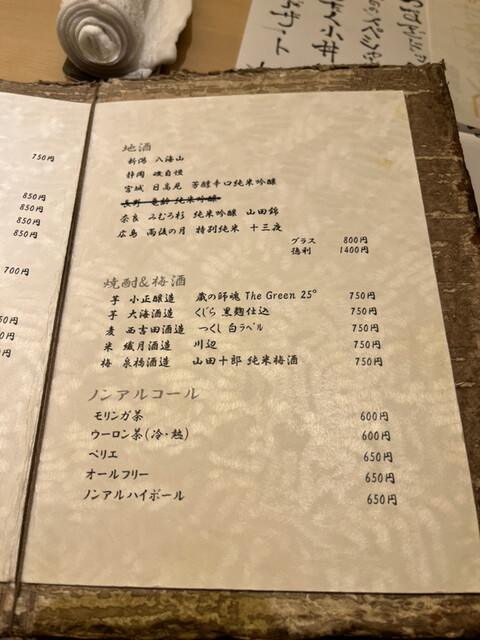 750円
850円
850円
850円
850円
700円
50円
0円
0円
地酒
新潟 八海山
静岡 磯自慢
宮城 日高見 芳醇辛口純米吟醸
長野 亀齢 純米吟醸
奈良 みむろ杉 純米吟醸 山田錦
広島 雨後の月 特別純米 十三夜
グラス 800円
徳利 1400円
焼酎&梅酒
芋 小正醸造 蔵の師魂 The Green 25°
750円
芋 大海酒造 くじら 黒麹仕込 750円
麦 西吉田酒造 つくし 白ラベル 750円
米 繊月酒造 川辺 750円
梅 泉橋酒造 山田十郎 純米梅酒 750円
ノンアルコール
モリンガ茶 600円
ウーロン茶(冷・熱) 600円
ペリエ 650円
オールフリー 650円
ノンアルハイボール 650円